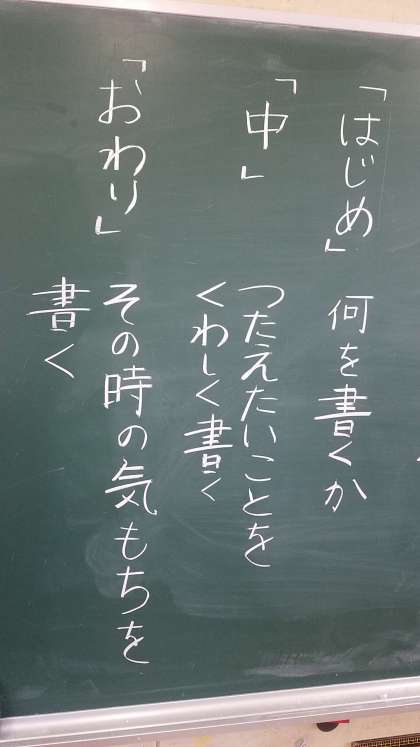 「はじめ」
何を書くか
「中」
つたえたいことを
くわしく書く
「おわり」
その時の気もちを
書く